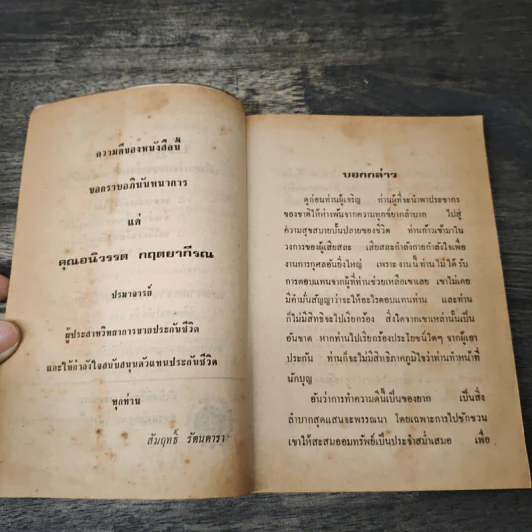 ความดีของหนังสือนี้
ขอกราบอภินันทนาการ
แด่
คุณอนิวรรต กฤตยากีรณ
ปรมาจารย์
ผู้ประสาทวิทยาการขายประกันชีวิต
และให้กำลังใจสนับสนุนตัวแทนประกันชีวิต
ทุกท่าน
สัมฤทธิ์ รัตนดารา
บอกกล่าว
ดูก่อนท่านผู้เจริญ ท่านผู้ที่จะนำพาประชากร
ของชาติให้ห่างพ้นจากความทุกข์ยากลำบาก ไปสู่
ความสุขสบายบั้นปลายของชีวิต ท่านก้าวเข้ามาใน
วงการของผู้เสียสละ เสียสละกำลังกายกำลังใจเพื่อ
งานการกุศลอันยิ่งใหญ่ เพราะงานนี้ท่านไม่ได้รับ
การตอบแทนจากผู้ที่ท่านช่วยเหลือเขาเลย เขาไม่เคย
มีคำมั่นสัญญาว่าจะให้อะไรตอบแทนท่าน และท่าน
ก็ไม่มีสิทธิจะไปเรียกร้อง สิ่งใดจากเขาเหล่านั้นเป็น
อันขาด หากท่านไปเรียกร้องประโยชน์ใดๆ จากผู้เอา
ประกัน ท่านก็จะไม่มีสิทธิภาคภูมิใจว่าท่านทำหน้าที่
นักบุญ
อันว่าการทำความดีนี้เป็นของยาก เป็นสิ่ง
ลำบากสุดแสนจะพรรณนา โดยเฉพาะการไปชักชวน
เขาให้สะสมออมทรัพย์เป็นประจำสม่ำเสมอ เพื่อ